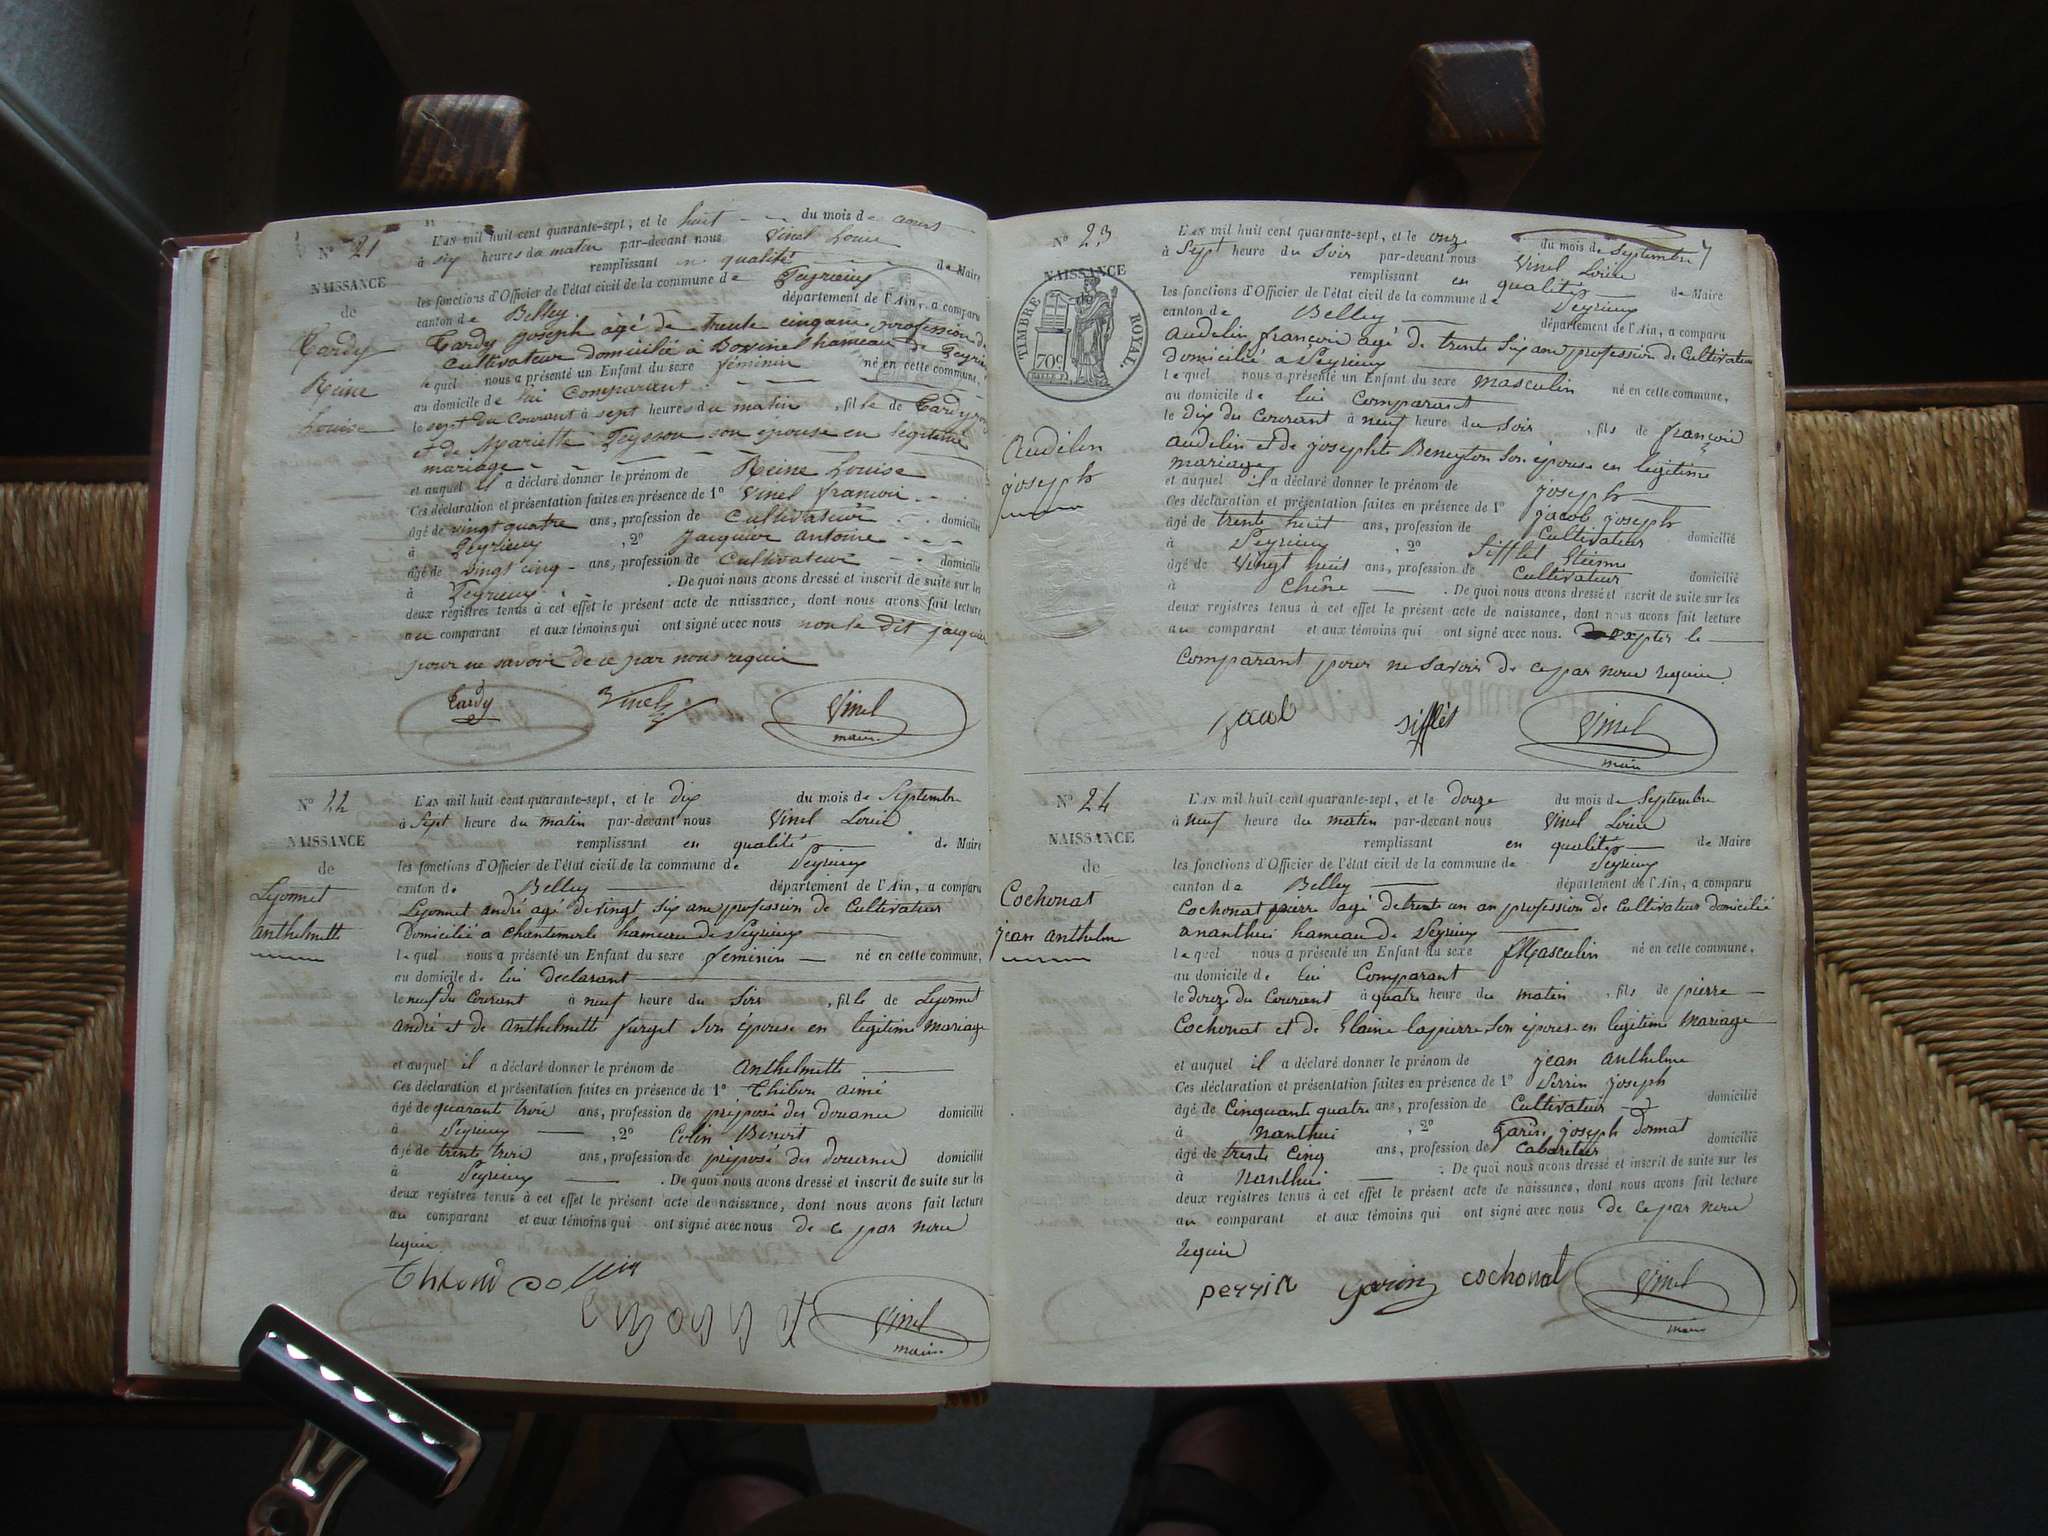 N° 21
NAISSANCE
de
Tardy
Reine
Louise
L'AN mil huit cent quarante-sept, et le huit du mois de aout
à six heures du matin par-devant nous Vinel Louis
remplissant en qualité de Maire
les fonctions d'Officier de l'état civil de la commune de Peyrieux
canton de Belley département de l'Ain, a comparu
Tardy joseph agé de trente cinq ans profession de
Cultivateur domicilié à hameau de Peyrieux
lequel nous a présenté un Enfant du sexe féminin né en cette commune,
au domicile de lui Comparant
le sept du Courant à sept heures du matin, fille de Tardy
et de Mariette Teysson son épouse en légitime
mariage
et auquel il a déclaré donner le prénom de Reine Louise
Ces déclaration et présentation faites en présence de 1° Vinel françois
âgé de vingt quatre ans, profession de Cultivateur domicilié
à Peyrieux, 2° jacquier antoine
âgé de vingt cinq ans, profession de Cultivateur domicilié
à Peyrieux. De quoi nous avons dressé et inscrit de suite sur les
deux registres tenus à cet effet le présent acte de naissance, dont nous avons fait lecture
au comparant et aux témoins qui ont signé avec nous non le dit jacquier
pour ne savoir de ce par nous requis
Tardy Vinel Vinel
maire
N° 22
NAISSANCE
de
Lyonnet
anthelmette
L'AN mil huit cent quarante-sept, et le dix du mois de Septembre
à Sept heure du matin par-devant nous Vinel Louis
remplissant en qualité de Maire
les fonctions d'Officier de l'état civil de la commune de Peyrieux
canton de Belley département de l'Ain, a comparu
Lyonnet andré agé de vingt six ans profession de Cultivateur
Domicilié a Chantemerle hameau de Peyrieux
lequel nous a présenté un Enfant du sexe féminin né en cette commune,
au domicile de lui Declarant
le neuf du Courant à neuf heure du Soir, fille de Lyonnet
André et de Anthelmette furget Son épouse en legitime Mariage
et auquel il a déclaré donner le prénom de Anthelmette
Ces déclaration et présentation faites en présence de 1° aimé
âgé de quarante trois ans, profession de préposé des douanes domicilié
à Peyrieux, 2° Colin Benoit
âgé de trente trois ans, profession de préposé des douanes domicilié
à Peyrieux. De quoi nous avons dressé et inscrit de suite sur les
deux registres tenus à cet effet le présent acte de naissance, dont nous avons fait lecture
au comparant et aux témoins qui ont signé avec nous de ce par nous
requis
Vinel
maire
N° 23
NAISSANCE
TIMBRE ROYAL.
70c
Audelin
joseph
L'AN mil huit cent quarante-sept, et le onze du mois de Septembre
à Sept heure du Soir par-devant nous Vinel Louis
remplissant en qualité de Maire
les fonctions d'Officier de l'état civil de la commune de Peyrieux
canton de Belley département de l'Ain, a comparu
Audelin françois agé de trente Six ans profession de Cultivateur
domicilié a Peyrieux
lequel nous a présenté un Enfant du sexe Masculin né en cette commune,
au domicile de lui Comparant
le dix du Courant à neuf heure du Soir, fils de françois
Audelin et de josephte Beneyton Son épouse en legitime
Mariage
et auquel il a déclaré donner le prénom de joseph
Ces déclaration et présentation faites en présence de 1° jacob joseph
âgé de trente huit ans, profession de Cultivateur domicilié
à Peyrieux, 2° Sifflet Etienne
âgé de Vingt huit ans, profession de Cultivateur domicilié
à Chêne. De quoi nous avons dressé et inscrit de suite sur les
deux registres tenus à cet effet le présent acte de naissance, dont nous avons fait lecture
au comparant et aux témoins qui ont signé avec nous. exepter le
Comparant pour ne Savoir de ce par nous requis.
jacob sifflet Vinel
maire
N° 24
NAISSANCE
de
Cochonat
jean anthelme
L'AN mil huit cent quarante-sept, et le douze du mois de Septembre
à neuf heure du matin par-devant nous Vinel Louis
remplissant en qualité de Maire
les fonctions d'Officier de l'état civil de la commune de Peyrieux
canton de Belley département de l'Ain, a comparu
Cochonat pierre agé de trente un an profession de Cultivateur domicilié
a nanthui hameau de Peyrieux
lequel nous a présenté un Enfant du sexe Masculin né en cette commune,
au domicile de lui Comparant
le douze du Courant à quatre heure du matin, fils de pierre
Cochonat et de Claine lapierre Son épouse en legitime Mariage
et auquel il a déclaré donner le prénom de jean anthelme
Ces déclaration et présentation faites en présence de 1° Perrin joseph
âgé de Cinquante quatre ans, profession de Cultivateur domicilié
à Nanthui, 2° Garin joseph Donnat
âgé de trente Cinq ans, profession de Cabaretier domicilié
à Nanthui. De quoi nous avons dressé et inscrit de suite sur les
deux registres tenus à cet effet le présent acte de naissance, dont nous avons fait lecture
au comparant et aux témoins qui ont signé avec nous de ce par nous
requis
perrin garin cochonat Vinel
maire